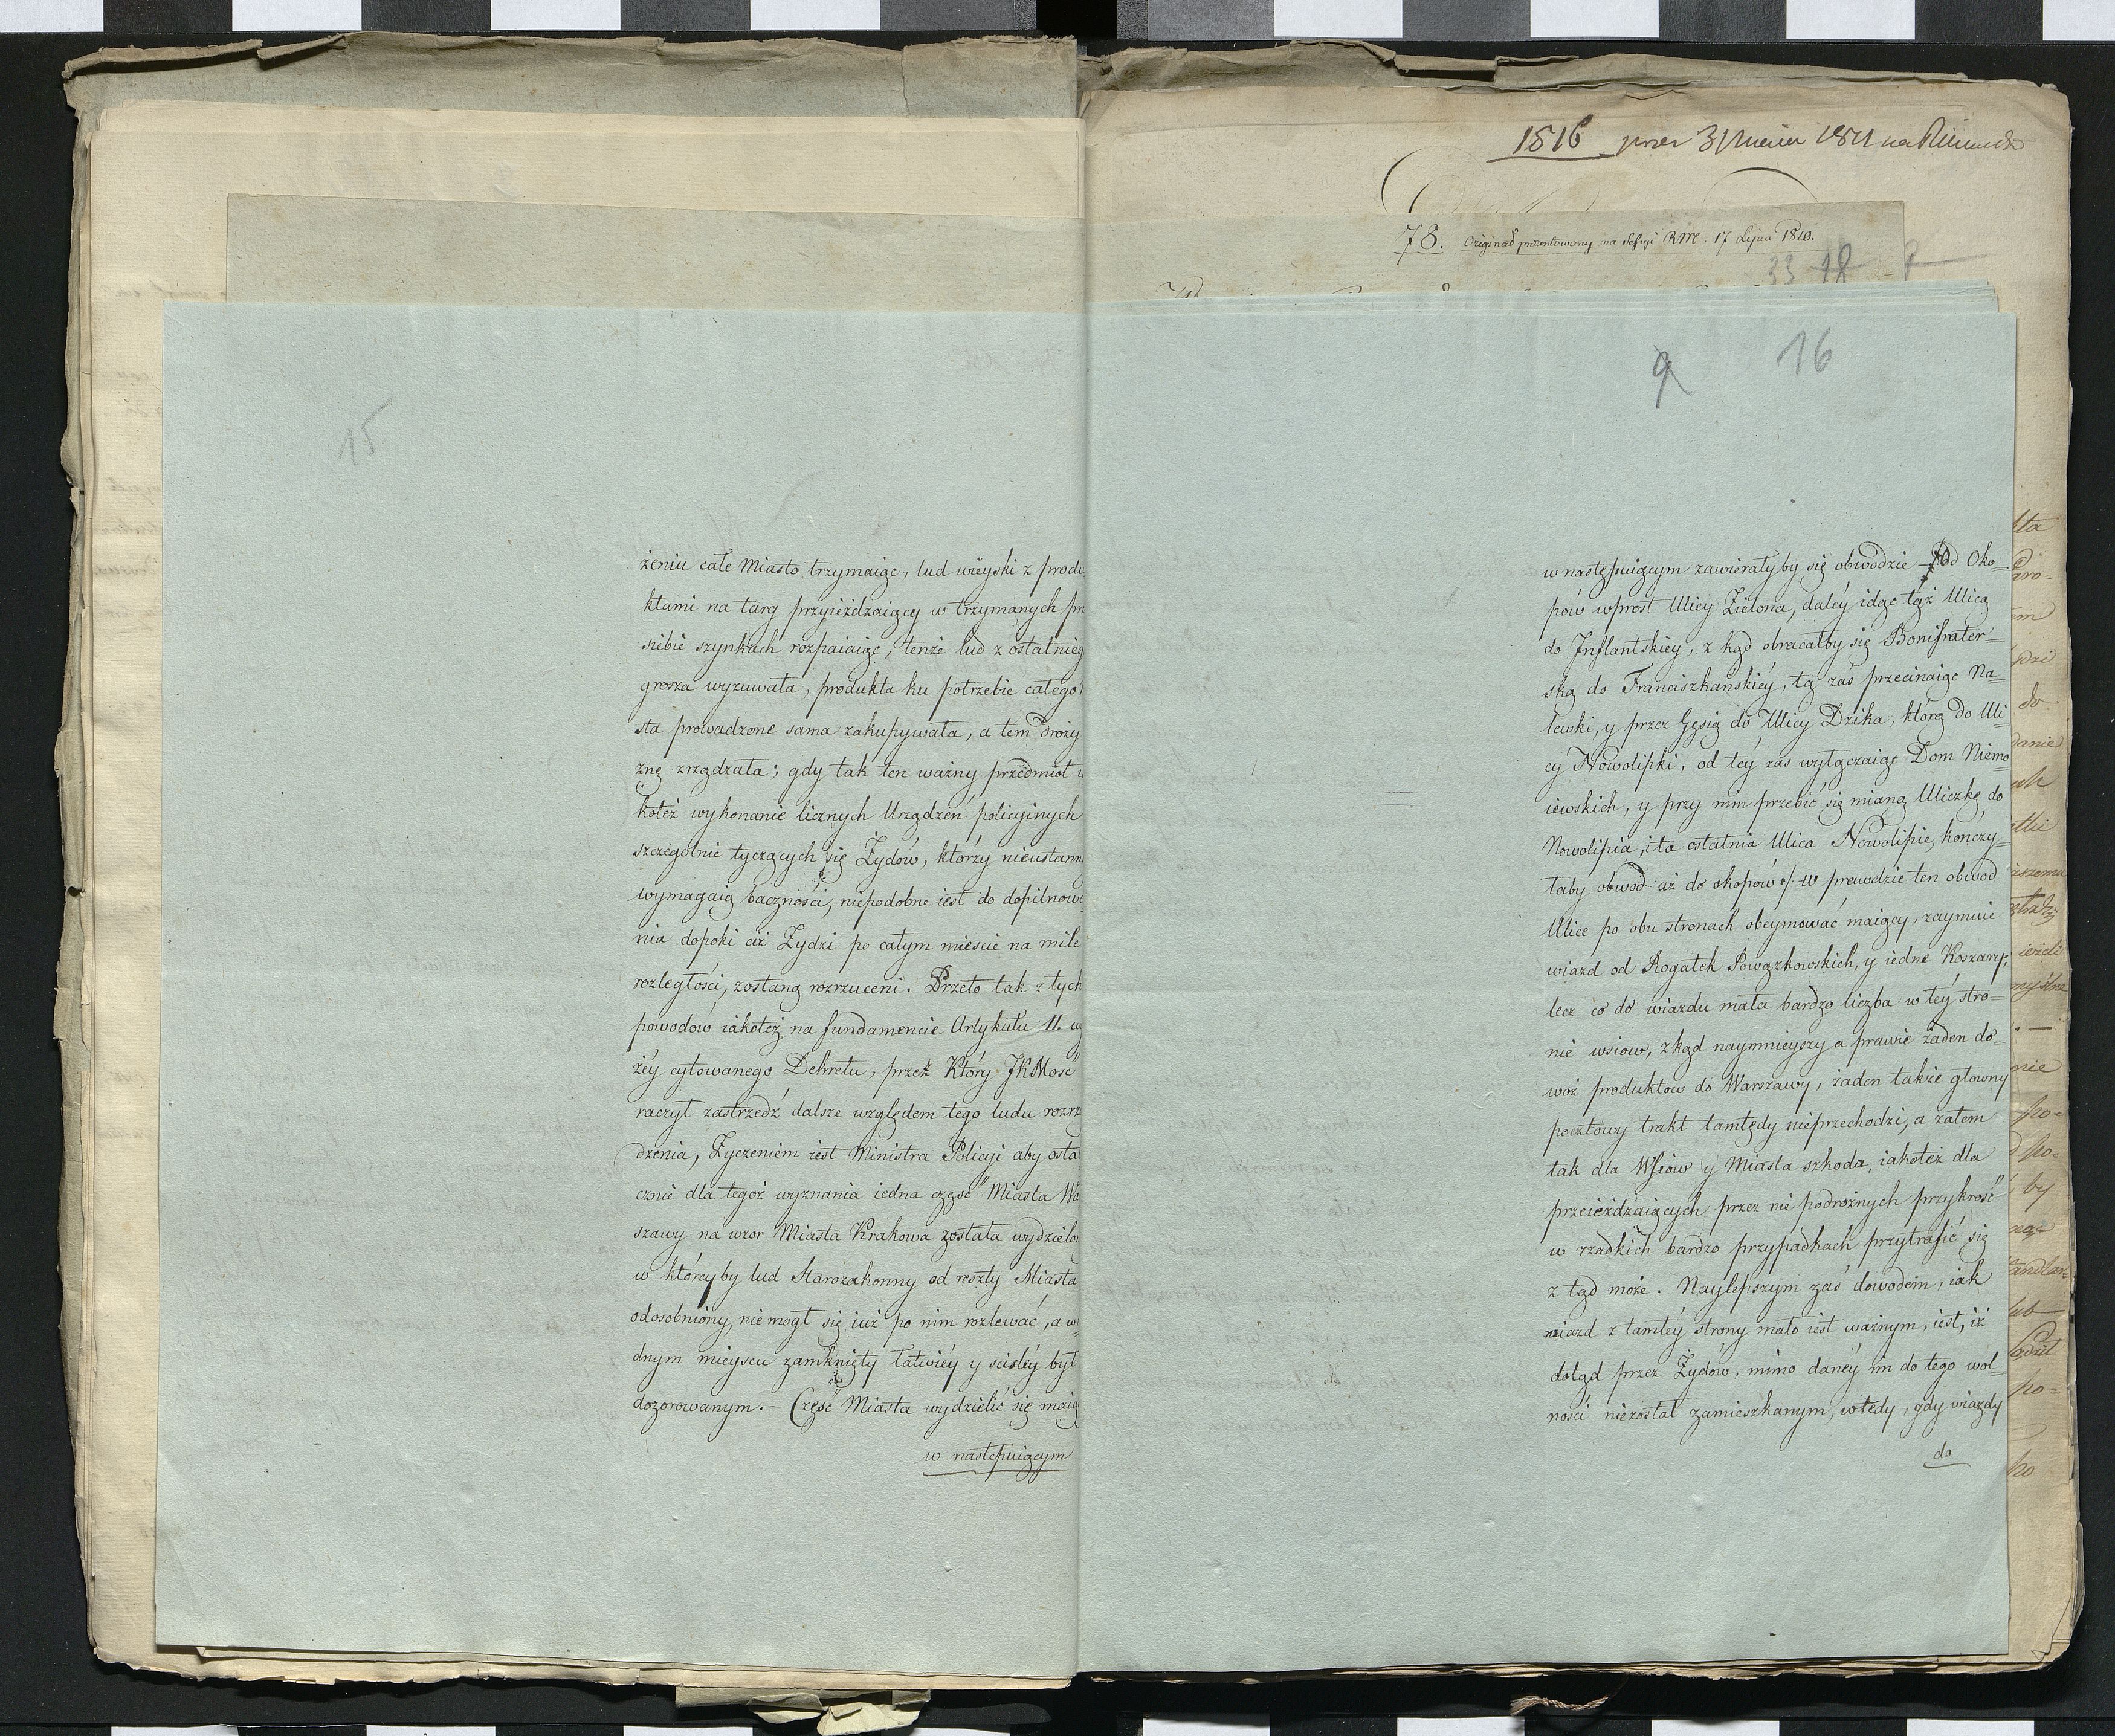 15
żeniu całe Miasto trzymaiąc, lud wieyski z produ
ktami na targ przyieżdzaiący w trzymanych
siebie szynkach rozpaiaiąc, tenże lud z ostatnieg
grosza wyzuwała, produkta ku potrzebie całego
sta prowadzone sama zakupywała, a tem droży
znę zrządzała; gdy tak ten ważny przedmiot
koteż wykonanie licznych Urządzeń policyinych
szczegolnie tyczących się Żydów, którzy nieustann
wymagaią baczności, niepodobne iest do dopilnowa
nia dopoki ciż Żydzi po całym mieście na mile
rozległości, zostaną rozrzuceni. Przeto tak z tych
powodów iakoteż na fundamencie Artykułu 11. wy
żéy cytowanego Dekretu, przez Który JKMość
raczył zastrzedz dalsze względem tego ludu rozrzą
dzenia, Życzeniem iest Ministra Policyi aby osta
cznie dla tegoż wyznania iedna część Miasta Wa
szawy na wzor Miasta Krakowa została wydzielo
w któreyby lud Starozakonny od reszty Miasta
odosobniony, nie mogł się iuż po nim rozlewać, a w
dnym mieyscu zamknięty łatwiéy y ściśléy był
dozorowanym. - Część Miasta wydzielić się maią
w następuiącym
1516 przez 1811 na
78. Originał prezentowany na Sessyi RM. 17 Lipca 1810.
33 18
9 16
w następuiącym zawierałyby się obwodzie - Od Oko=
pów wprost Ulicy Zielona, daléy idąc tąż Ulicą
do Inflantskiey, z kąd obracałby się Bonifrater=
ską do Franciszkańskiéy, tą zaś przecinaiąc Na=
lewki, y przez Gęsią do Ulicy Dzika, którą do Uli=
cy Nowolipki, od téy zas wyłączaiąc Dom Niemo
iewskich, y przy nim przebić się mianą Uliczkę do
Nowolipia, i ta ostatnia Ulica Nowolipie, kończy=
łaby obwod aż do okopów. W prawdzie ten obwod
Ulice po obu stronach obeymować maiący, zaymuie
wiazd od Rogatek Powązkowskich, y iedne Koszary;
lecz co do wiazdu mała bardzo liczba w téy stro=
nie wsiow, z kąd naymnieyszy a prawie żaden do=
woź produktow do Warszawy, żaden także głowny
pocztowy trakt tamtędy nieprzechodzi, a zatem
tak dla Wsiów y Miasta szkoda, iakoteż dla
przeieżdzaiących przez nie podrożnych przykrość
w rzadkich bardzo przypadkach przytrafić się
z tąd może. Naylepszym zaś dowodem, iak
wiazd z tamtéy strony mało iest ważnym, iest, iż
dotąd przez Żydów, mimo danéy im do tego wol=
ności niezostał zamieszkanym, wtedy, gdy wiazdy
do